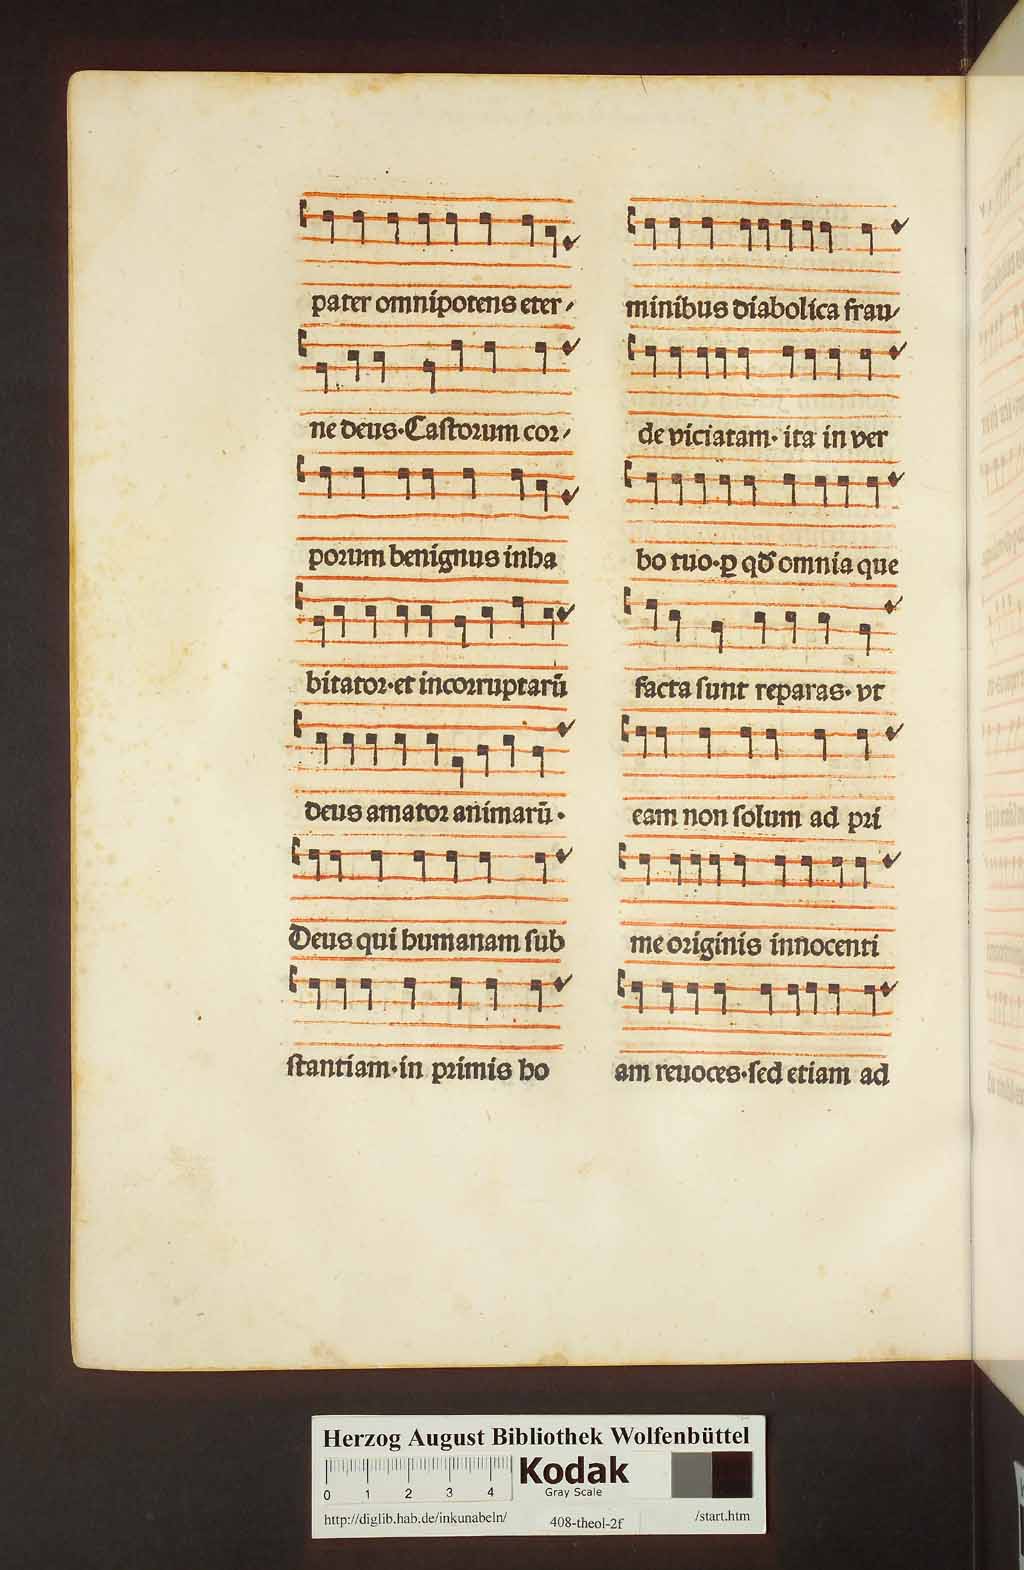 pater omnipotens eter⸗
ne deus·Castorum cor⸗
porum benignus inha
bitator·et incorruptarū
deus amator animarū·
Deus qui humanam sub
stantiam·in primis ho
minibus diabolica frau⸗
de viciatam· ita in ver
bo tuo·ꝑ qđ omnia que
facta sunt reparas· vt
eam non solum ad pri
me originis innocenti
am reuoces·sed etiam ad
Herzog August Bibliothek Wolfenbüttel
Kodak
Gray Scale
0 1 2 3 4
http://diglib.hab.de/inkunabeln/ 408-theol-2f /start.htm